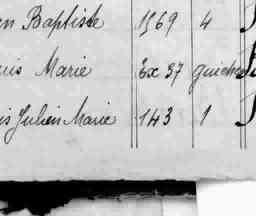 en Baptiste 1569 4
uis Marie Ex 37 guiche
is Julien Marie 143 1